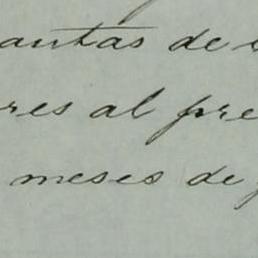 antas de
res al pre
meses de